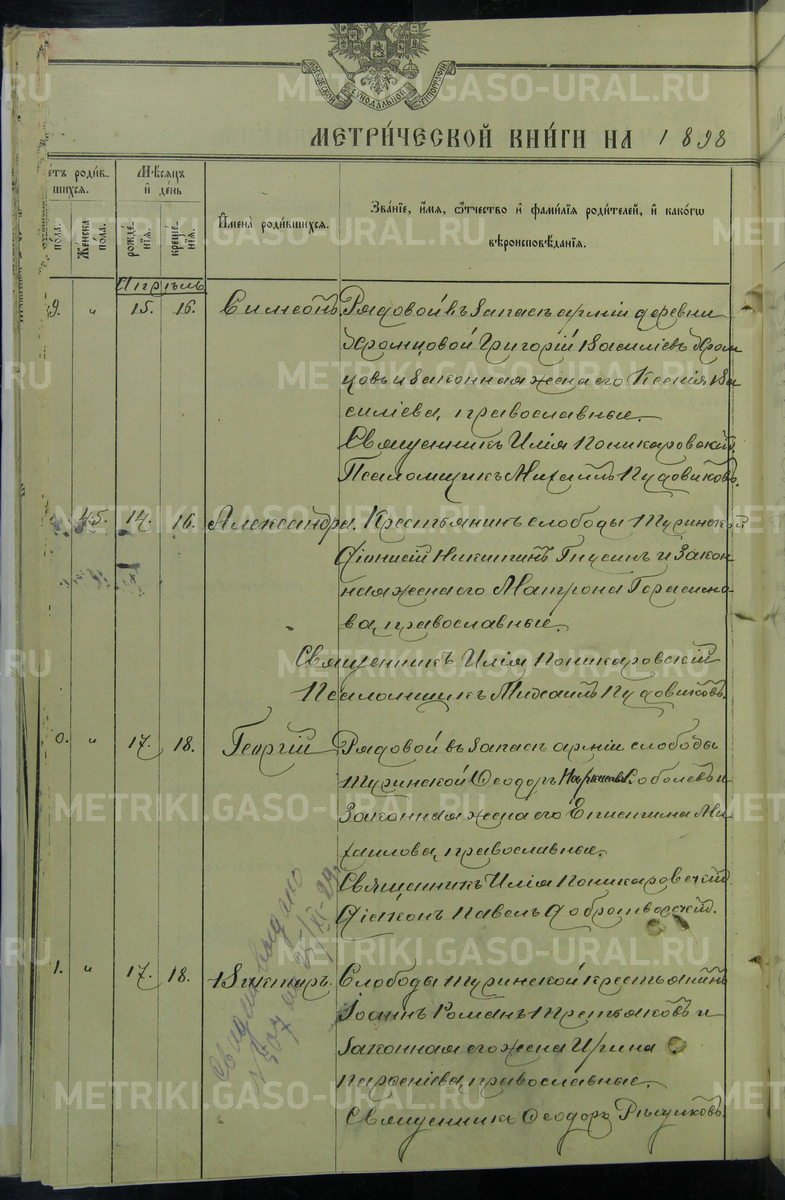 МОСКОВСКОЙ СѴНОДАЛЬНОЙ ТИПОГРАФІИ
МЕТРИ́ЧЕСКОЙ КНИ́ГИ НА 1898
е́тъ роди́в-
шихся.
Мѣ́сяцъ
и҆ де́нь
пола.
Же́нска
по́ла.
рожде́-
нїя.
креще́-
нїя.
И҆мена̀ роди́вшихся.
Зва́нїе, и҆́мя, ѻ҆́тчество и҆ фами́лїя роди́телей, и҆ како́гѡ
вѣроисповѣ́данїя.
Апрѣль
9. „ 15. 16. Симеонъ. Рядовой въ запасѣ арміи деревни
Храмцовой Григорій Василіевъ Храм
цовъ и законная жена его Ксенія Ва
силіева, православные.
Священникъ Илія Поникаровскій.
Псаломщикъ Михаилъ Пудовиковъ.
45. 14. 16. Александра. Крестьянинъ слободы Туринской
Діонисій Никитинъ Гнусинъ и закон
ная жена его Матрона Герасимо-
ва, православные.
Священникъ Илія Поникаровскій
Псаломщикъ Михаилъ Пудовиковъ.
0. „ 17. 18. Георгій Рядовой въ запасѣ арміи слободы
Туринской Ѳеодоръ Соболевъ и
законная жена его Епистима Ми
хаилова, православные.
Священникъ Илія Поникаровскій.
Діаконъ Павелъ Добротворскій.
1. „ 17. 18. Викторъ. Слободы Туринской крестьянинъ
Іоаннъ Романъ Третьяковъ и
законная его жена Ирина
Парѳеніева, православные.
Священникъ Ѳеодоръ
выдано
METRIKI.GASO-URAL.RU